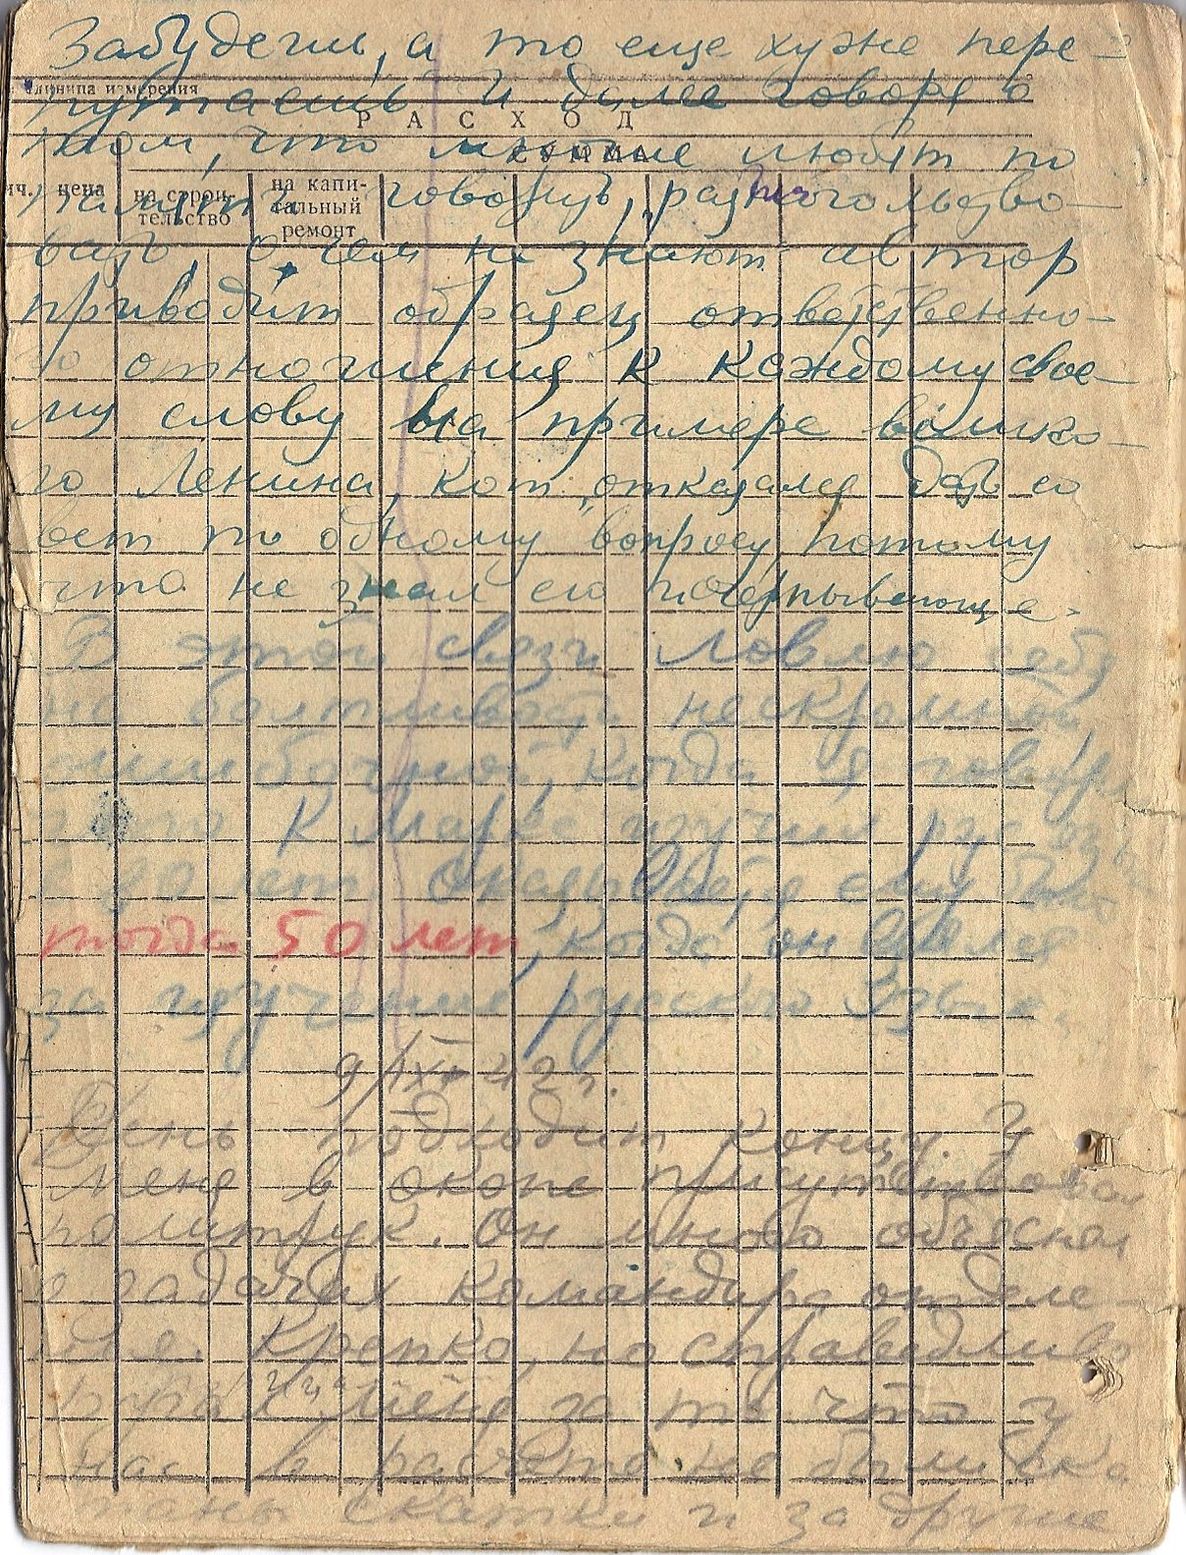 забудешь, а то еще хуже пере-
единица измерения
путаешь И далее говоря о
РАСХОД
том, что многие любят по
СУММА
цена
на строи-
тельство
на капи-
тальный
ремонт
говорить,
вать о чем не знают автор
приводит образец ответственно-
го отношения к каждому свое-
му слову На примере велико-
го Ленина, кот. отказался дать со
вет по одному вопросу потому
что не знал его исчерпывающе.
В этой связи ловлю себя
на болтливости нескромной
ошибочной, когда я говорю
что К Маркс изучил рус язык
в лет Оказывается ему было
тогда 50 лет, когда он взялся
за изучение русского языка.
9/IX 42 г.
День подходит концу. У
меня в окопе присутствовал
политрук. Он много объяснял
о задачах командира отделе-
ния. Крепко, но справедливо
меня за то что у
нас в расчете не были ска
таны скатки и за другие